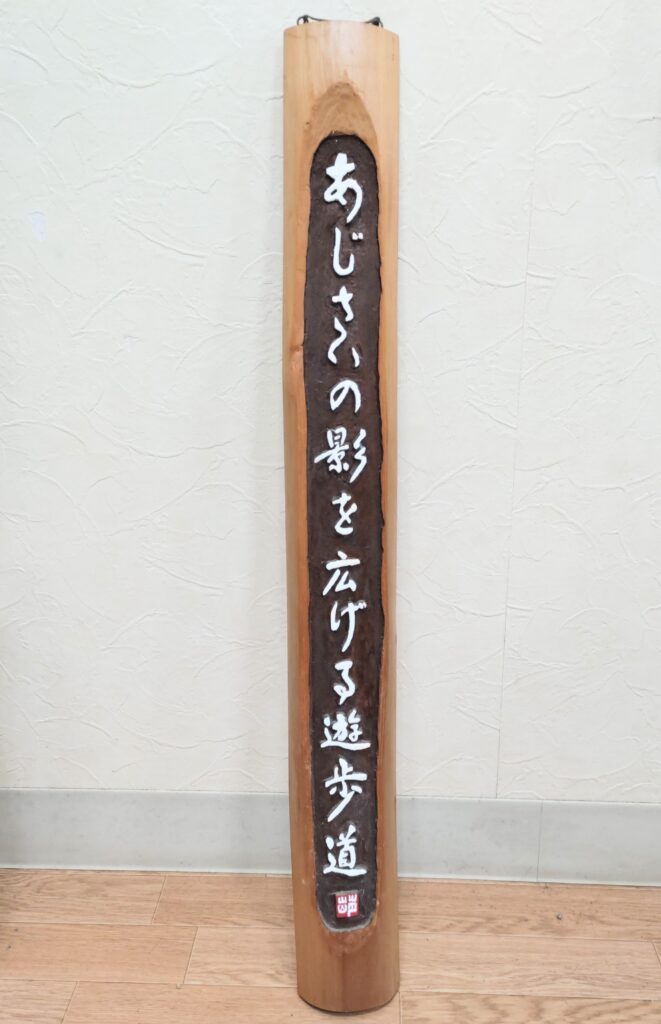 あじさいの影を広げる遊歩道